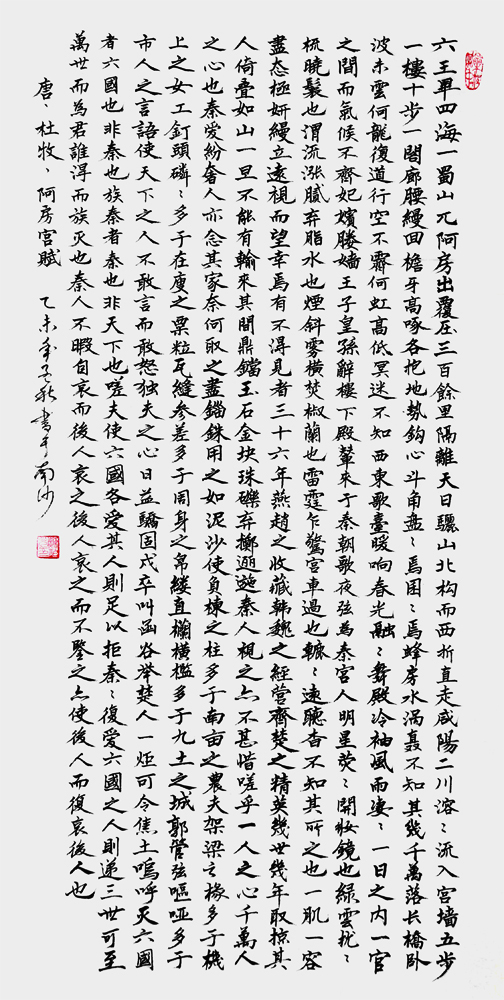 六王畢四海一蜀山兀阿房出覆压三百餘里隔離天日驪山北构而西折直走咸陽二川溶〻流入宫墙五步
一樓十步一閣廊腰縵回檐牙高啄各抱地勢鈎心斗角盘〻焉囷〻焉蜂房水渦矗不知其幾千萬落长橋卧
波未雲何龍復道行空不霽何虹高低冥迷不知西東歌臺暖响春光融〻舞殿冷袖風雨凄〻一日之内一宫
之間而氣候不齊妃嬪媵嬙王子皇孫辭樓下殿輦来于秦朝歌夜弦為秦宫人明星荧〻開妝鏡也緑雲扰〻
梳曉鬟也渭流漲膩弃脂水也煙斜雾横焚椒蘭也雷霆乍驚宫車過也轆〻遠聽杳不知其所之也一肌一容
盡态極妍縵立遠視而望幸焉有不得見者三十六年燕趙之收藏韓魏之經營齊楚之精英幾世幾年取掠其
人倚叠如山一旦不能有輸来其間鼎鐺玉石金块珠礫弃擲邐迤秦人視之亦不甚惜嗟乎一人之心千萬人
之心也秦爱紛奢人亦念其家奈何取之盡錙銖用之如泥沙使負棟之柱多于南亩之農夫架梁之椽多于機
上之女工釘頭磷〻多于在庾之粟粒瓦縫參差多于周身之帛縷直欄横檻多于九土之城郭管弦嘔哑多于
市人之言語使天下之人不敢言而敢怒独夫之心日益驕固戍卒叫函谷举楚人一炬可令焦土嗚呼灭六國
者六國也非秦也族秦者秦也非天下也嗟夫使六國各爱其人則足以拒秦〻復爱六國之人則递三世可至
萬世而為君誰得而族灭也秦人不暇自哀而後人哀之後人哀之而不鑒之亦使後人而復哀後人也
唐、杜牧、阿房宫賦 乙未年孟秋書于南沙